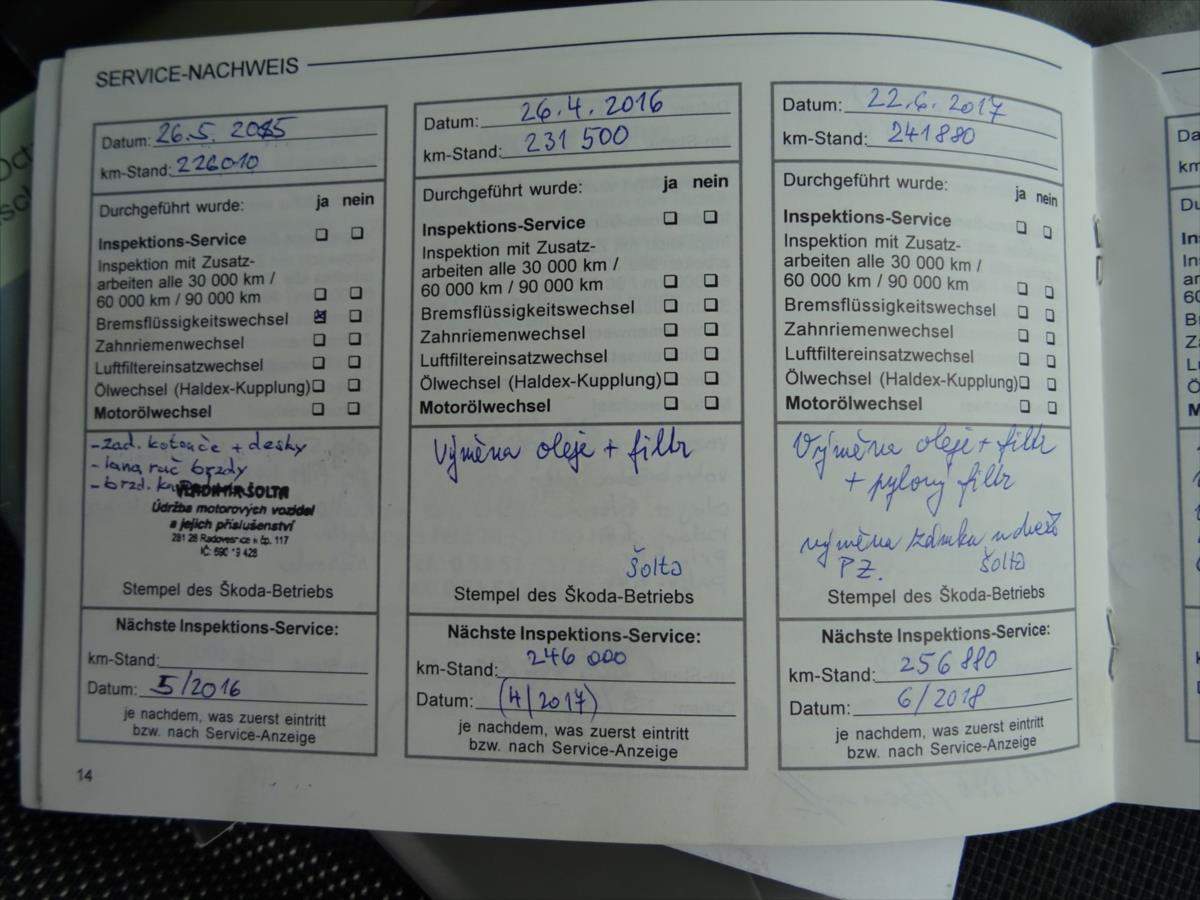 SERVICE-NACHWEIS
Datum: 26.5. 2015
km-Stand: 226010
Durchgeführt wurde: ja nein
Inspektions-Service
Inspektion mit Zusatz-
arbeiten alle 30 000 km /
60 000 km / 90 000 km
Bremsflüssigkeitswechsel
Zahnriemenwechsel
Luftfiltereinsatzwechsel
Ölwechsel (Haldex-Kupplung)
Motorölwechsel
- zad. kotouče + desky
- lana ruč brzdy
- brzd.
VLADIMÍR ŠOLTA
Údržba motorových vozidel
a jejich příslušenství
281 28 Radovesnice čp. 117
IČ:
Stempel des Škoda-Betriebs
Nächste Inspektions-Service:
km-Stand:
Datum: 5/2016
je nachdem, was zuerst eintritt
bzw. nach Service-Anzeige
14
Datum: 26.4.2016
km-Stand: 231 500
Durchgeführt wurde: ja nein
Inspektions-Service
Inspektion mit Zusatz-
arbeiten alle 30 000 km /
60 000 km / 90 000 km
Bremsflüssigkeitswechsel
Zahnriemenwechsel
Luftfiltereinsatzwechsel
Ölwechsel (Haldex-Kupplung)
Motorölwechsel
Výměna oleje + filtr
Šolta
Stempel des Škoda-Betriebs
Nächste Inspektions-Service:
km-Stand: 246 000
Datum: (4/2017)
je nachdem, was zuerst eintritt
bzw. nach Service-Anzeige
Datum: 22.6.2017
km-Stand: 241880
Durchgeführt wurde: ja nein
Inspektions-Service
Inspektion mit Zusatz-
arbeiten alle 30 000 km /
60 000 km / 90 000 km
Bremsflüssigkeitswechsel
Zahnriemenwechsel
Luftfiltereinsatzwechsel
Ölwechsel (Haldex-Kupplung)
Motorölwechsel
Výměna oleje + filtr
+ pylový filtr
výměna zámku
PZ. Šolta
Stempel des Škoda-Betriebs
Nächste Inspektions-Service:
km-Stand: 256 880
Datum: 6/2018
je nachdem, was zuerst eintritt
bzw. nach Service-Anzeige